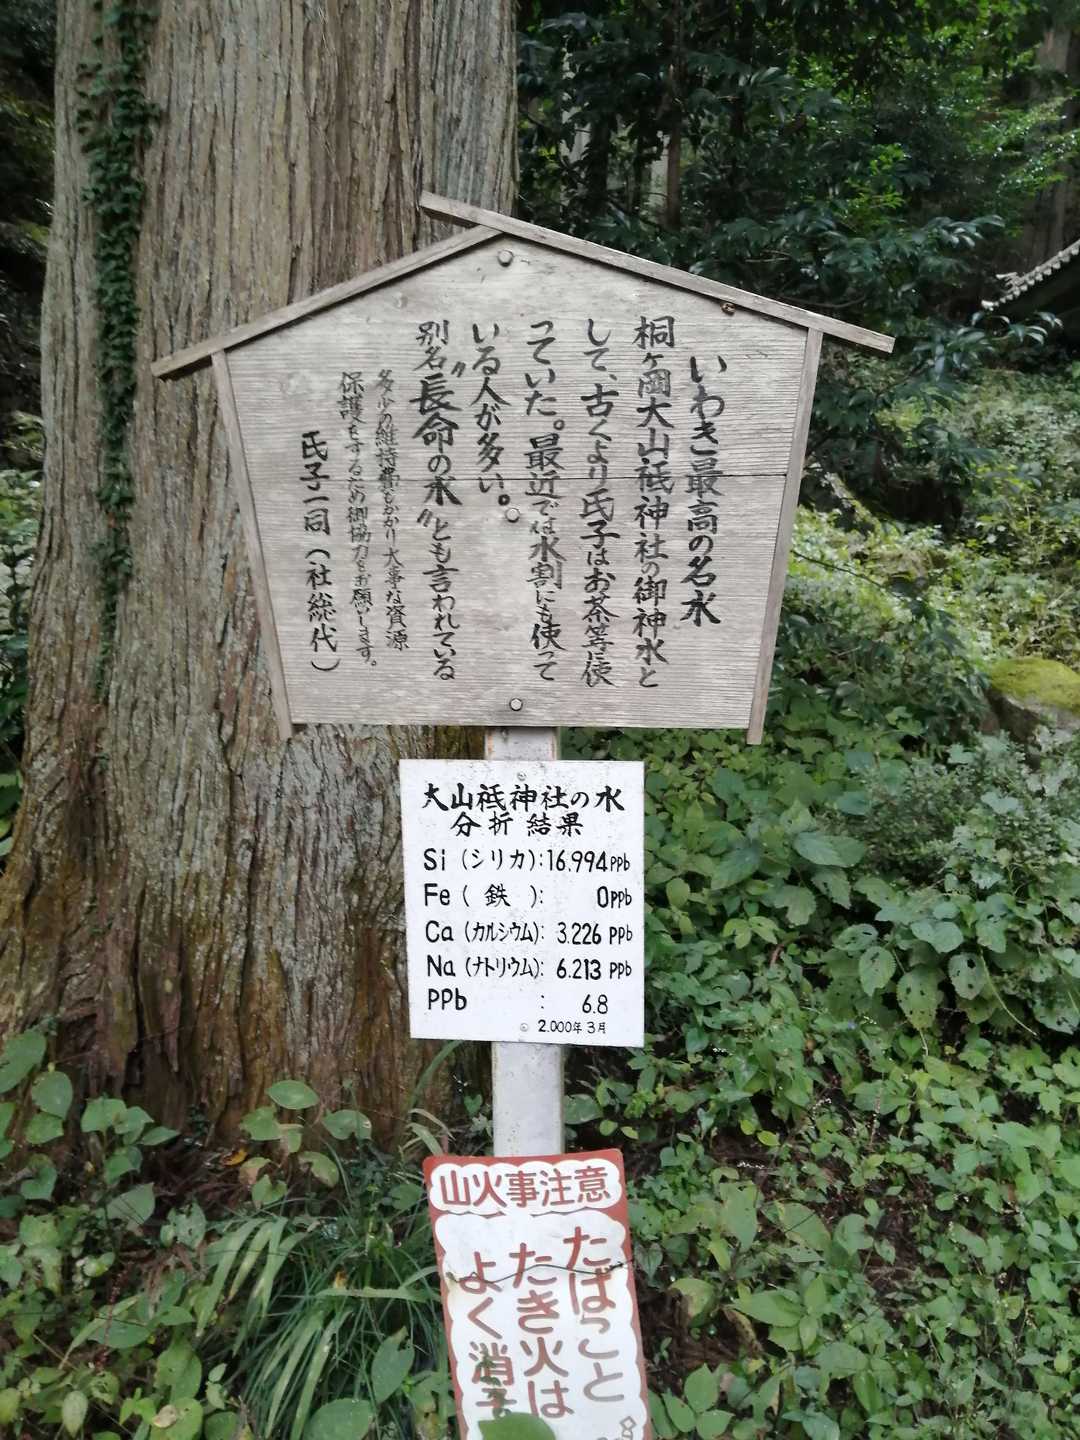 いわき最高の名水
桐ヶ岡大山祗神社の御神水と
して、古くより氏子はお茶等に使
っていた。最近では水割にも使って
いる人が多い。
別名〝長命の水〟とも言われている
多少の維持費もかかり大事な資源
保護をするため御協力をお願いします。
氏子一同(社総代)
大山祗神社の水
分折結果
Si(シリカ):16.994PPb
Fe(鉄):0PPb
Ca(カルシウム):3.226PPb
Na(ナトリウム):6.213PPb
PPb:6.8
2.000年3月
山火事注意
たばこと
たき火は
よく消